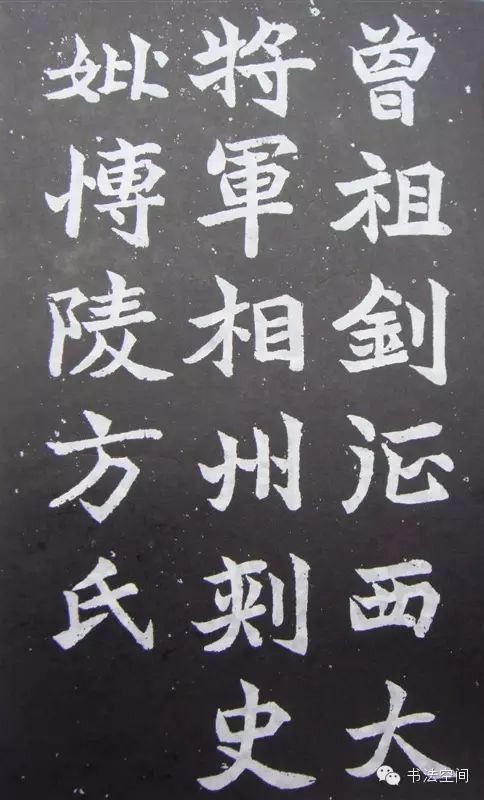 曾祖釗征西大
將軍相州刺史
妣愽陵方氏
书法空间